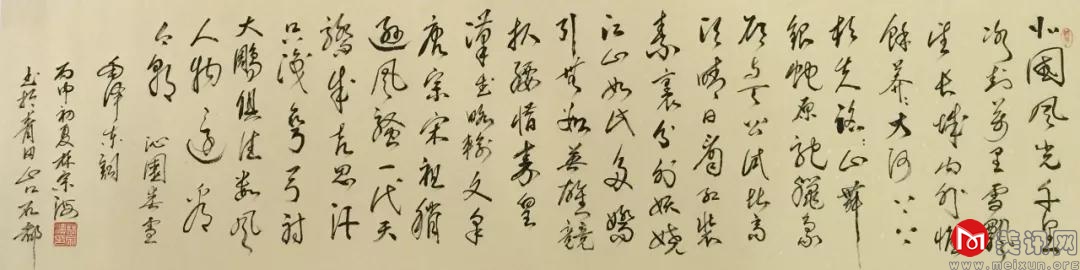 北國风光千里
冰封万里雪飘
望长城内外惟
餘莽々大河上下
顿失滔々山舞
银蛇原驰腊象
欲与天公试比高
须晴日看红装
素裹分外妖娆
江山如此多嬌
引无数英雄競
折腰惜秦皇
漢武略输文采
唐宗宋祖稍
逊风骚一代天
骄成吉思汗
只識弯弓射
大鵬俱往数风
人物还看
今朝 沁園春雪
毛泽东詞
丙申初夏林宗海
书於青田山口石都
美讯网
www.meixun.org